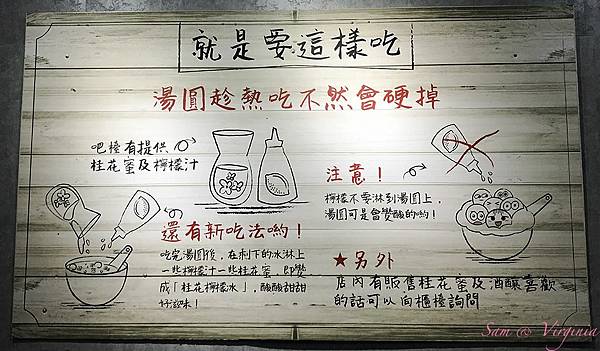 就是要這樣吃
湯圓趁熱吃不然會硬掉
吧檯有提供
桂花蜜及檸檬汁
還有新吃法喲！
吃完湯圓後，在剩下的冰淋上
一些檸檬汁一些桂花蜜 即變
成「桂花檸檬冰」，酸酸甜甜
好滋味！
注意！
檸檬不要淋到湯圓上，
湯圓可是會變酸的喲！
★另外
店內有販售桂花蜜及酒釀喜歡
的話可以向櫃檯詢問
Sam @ Virginia